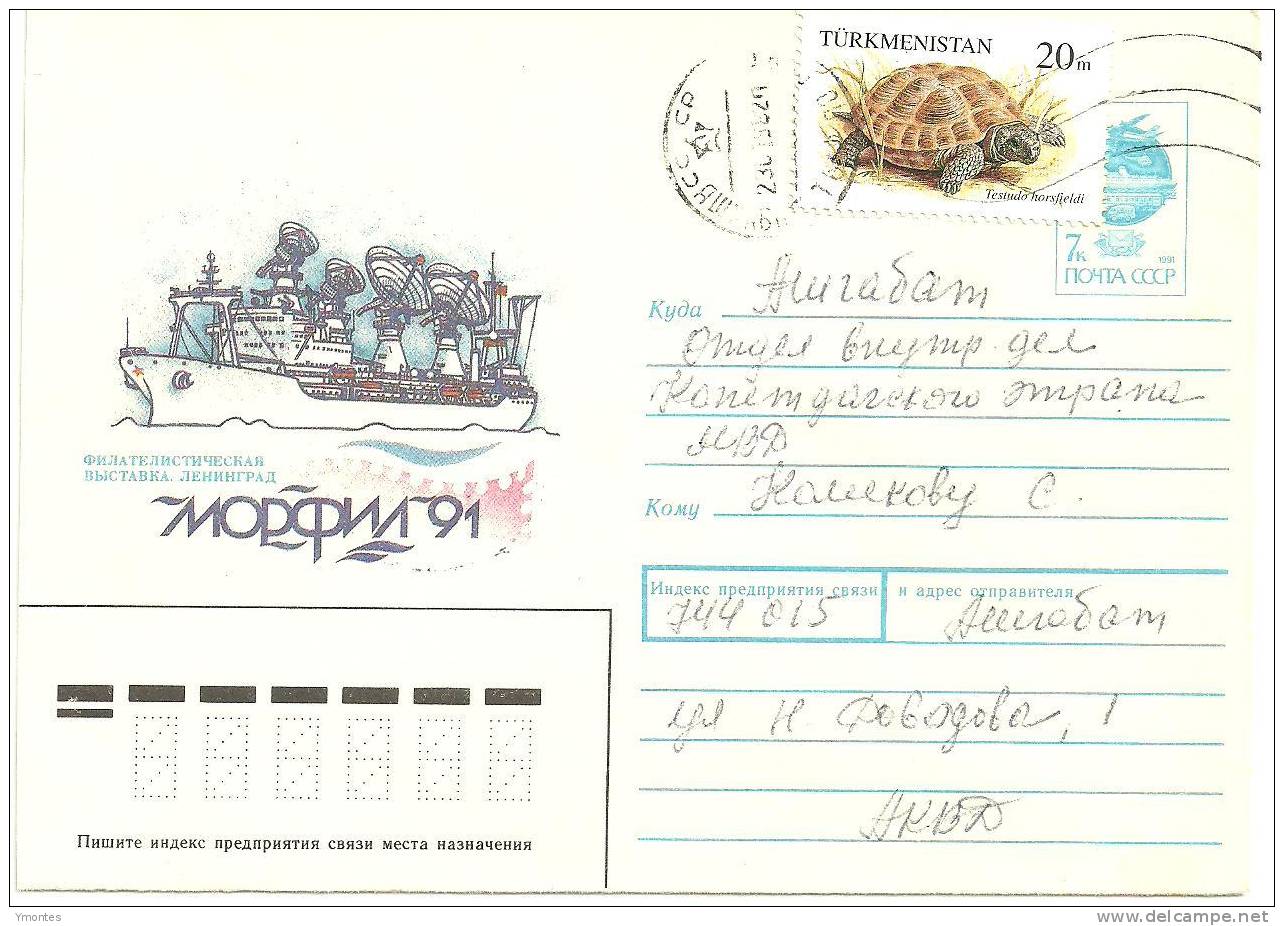 TÜRKMENISTAN 20m
Testudo horsfieldi
7к 1991
ПОЧТА СССР
Куда Ашгабат
Отдел внутр. дел
Копетдагского этрапа
Кому
С.
ФИЛАТЕЛИСТИЧЕСКАЯ
ВЫСТАВКА. ЛЕНИНГРАД
МОРФИЛ 91
Индекс предприятия связи и адрес отправителя
744 015 Ашгабат
ул Н
, 1
Пишите индекс предприятия связи места назначения
Ymontes
www.delcampe.net